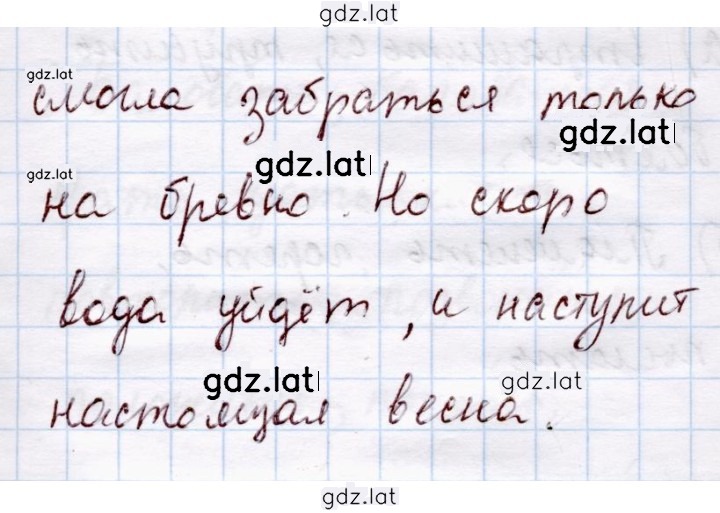 gdz.lat
gdz.lat
смогла забраться только
gdz.lat
gdz.lat
gdz.lat
на бревно. Но скоро
вода уйдёт, и наступит
gdz.lat
gdz.lat
настоящая весна.
gdz.lat